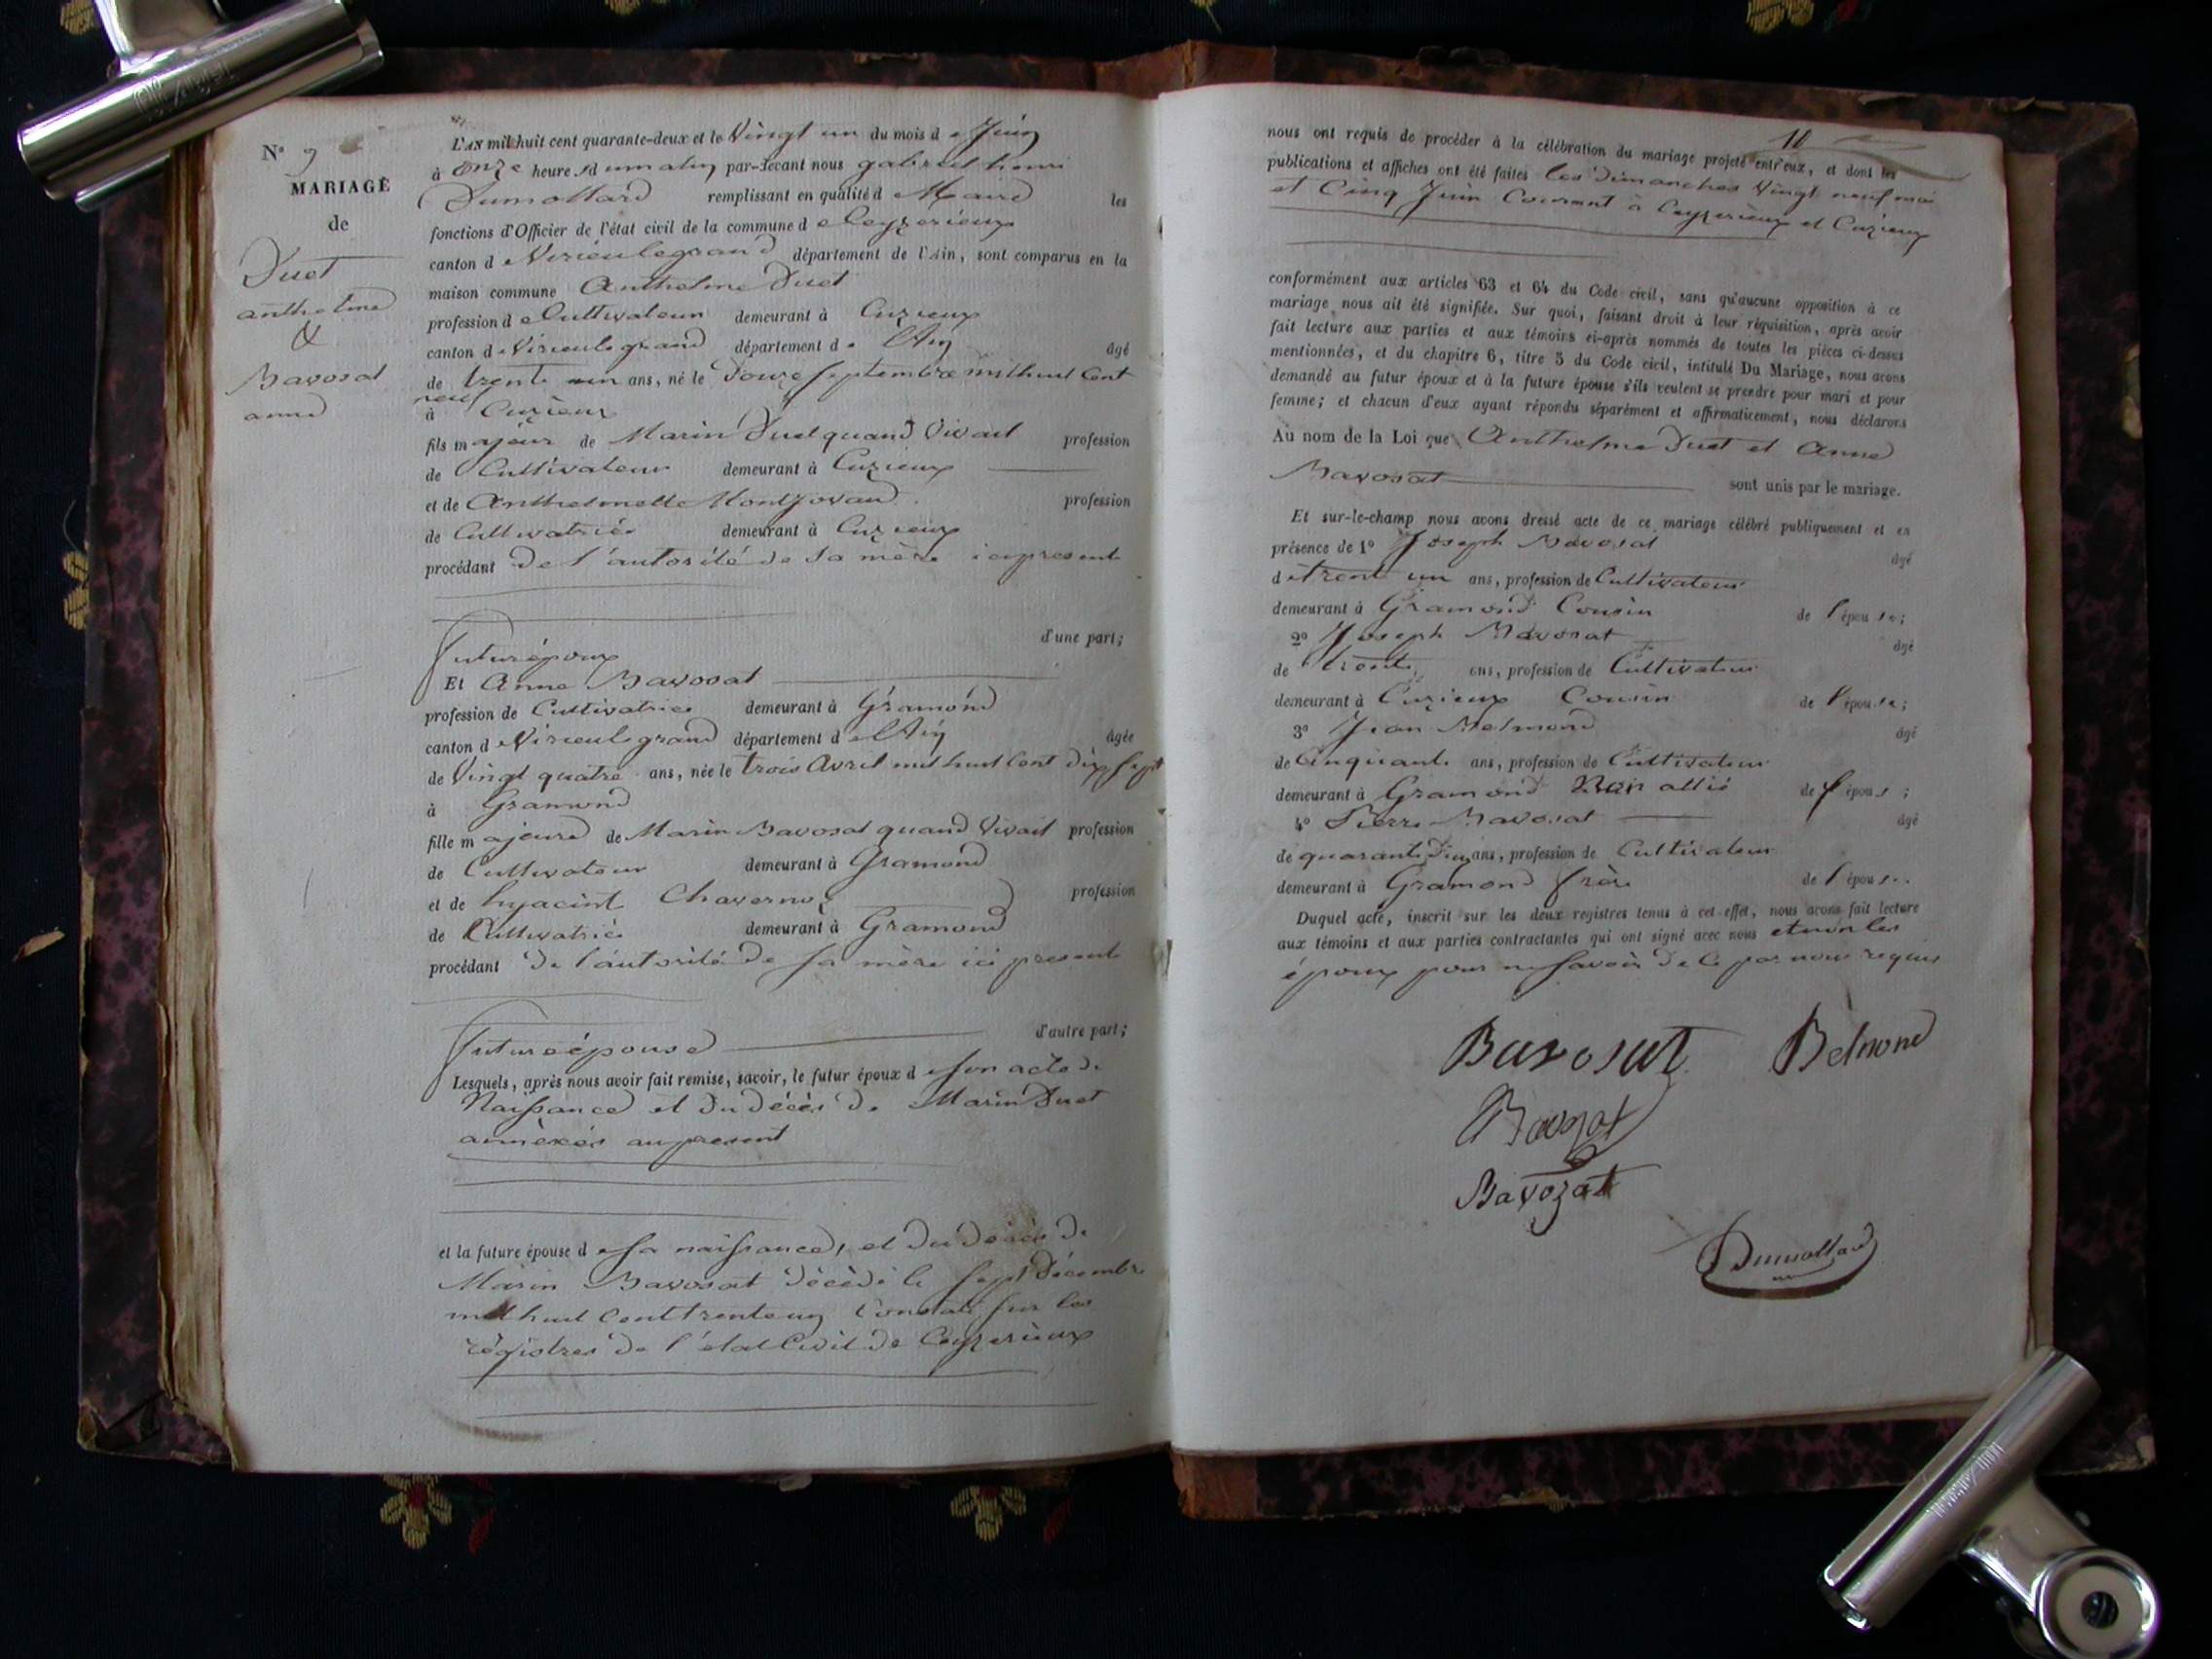 N° 9
MARIAGE
de
Duet
anthelme
&
Bavosat
anne
L'AN mil huit cent quarante-deux et le Vingt un du mois de Juin
à onze heures du matin par-devant nous gabriel henri
Dumollard remplissant en qualité de Maire les
fonctions d'Officier de l'état civil de la commune de Ceyzerieux
canton de Virieulegrand département de l'Ain, sont comparus en la
maison commune Anthelme Duet
profession de Cultivateur demeurant à Cuzieux
canton de Virieulegrand département de l'Ain âgé
de trente un ans, né le Douze septembre mil huit Cent
neuf
à Cuzieux
fils majeur de Marin Duet quand Vivait profession
de Cultivateur demeurant à Cuzieux
et de Anthelmette Montjovand profession
de Cultivatrice demeurant à Cuzieux
procédant de l'autorité de sa mère ici présente
d'une part;
futur époux
Et Anne Bavosat
profession de Cultivatrice demeurant à Gramond
canton de Virieulegrand département de l'Ain âgée
de Vingt quatre ans, née le trois Avril mil huit Cent dix sept
à Gramond
fille majeure de Marin Bavosat quand Vivait profession
de Cultivateur demeurant à Gramond
et de hyacint Chavernoz profession
de Cultivatrice demeurant à Gramond
procédant de l'autorité de sa mère ici présente
d'autre part;
future épouse
Lesquels, après nous avoir fait remise, savoir, le futur époux de son acte de
Naissance et du décès de Marin Duet
annexés au présent
et la future épouse de sa naissance, et du décès de
Marin Bavosat décédé le sept Décembre
mil huit cent trente un Constaté sur les
régistres de l'état Civil de Ceyzerieux
10
nous ont requis de procéder à la célébration du mariage projeté entr'eux, et dont les
publications et affiches ont été faites les dimanches Vingt neuf mai
et Cinq Juin Courant à Ceyzerieux et Cuzieux
conformément aux articles 63 et 64 du Code civil, sans qu'aucune opposition à ce
mariage nous ait été signifiée. Sur quoi, faisant droit à leur réquisition, après avoir
fait lecture aux parties et aux témoins ci-après nommés de toutes les pièces ci-dessus
mentionnées, et du chapitre 6, titre 5 du Code civil, intitulé Du Mariage, nous avons
demandé au futur époux et à la future épouse s'ils veulent se prendre pour mari et pour
femme; et chacun d'eux ayant répondu séparément et affirmativement, nous déclarons
Au nom de la Loi que Anthelme Duet et Anne
Bavosat sont unis par le mariage.
Et sur-le-champ nous avons dressé acte de ce mariage célébré publiquement et en
présence de 1° Joseph Bavosat âgé
de trente un ans, profession de Cultivateur
demeurant à Gramond Cousin de l'épouse;
2° Joseph Bavosat âgé
de trente ans, profession de Cultivateur
demeurant à Cuzieux Cousin de l'épouse;
3° Jean Belmond âgé
de Cinquante ans, profession de Cultivateur
demeurant à Gramond Non allié de l'épouse;
4° Pierre Bavosat âgé
de quarante ans, profession de Cultivateur
demeurant à Gramond frère de l'épouse.
Duquel acte, inscrit sur les deux registres tenus à cet effet, nous avons fait lecture
aux témoins et aux parties contractantes qui ont signé avec nous et non les
époux pour ne savoir de ce par nous requis
Bavosat Belmond
Bavozat
Bavozat
Dumollard